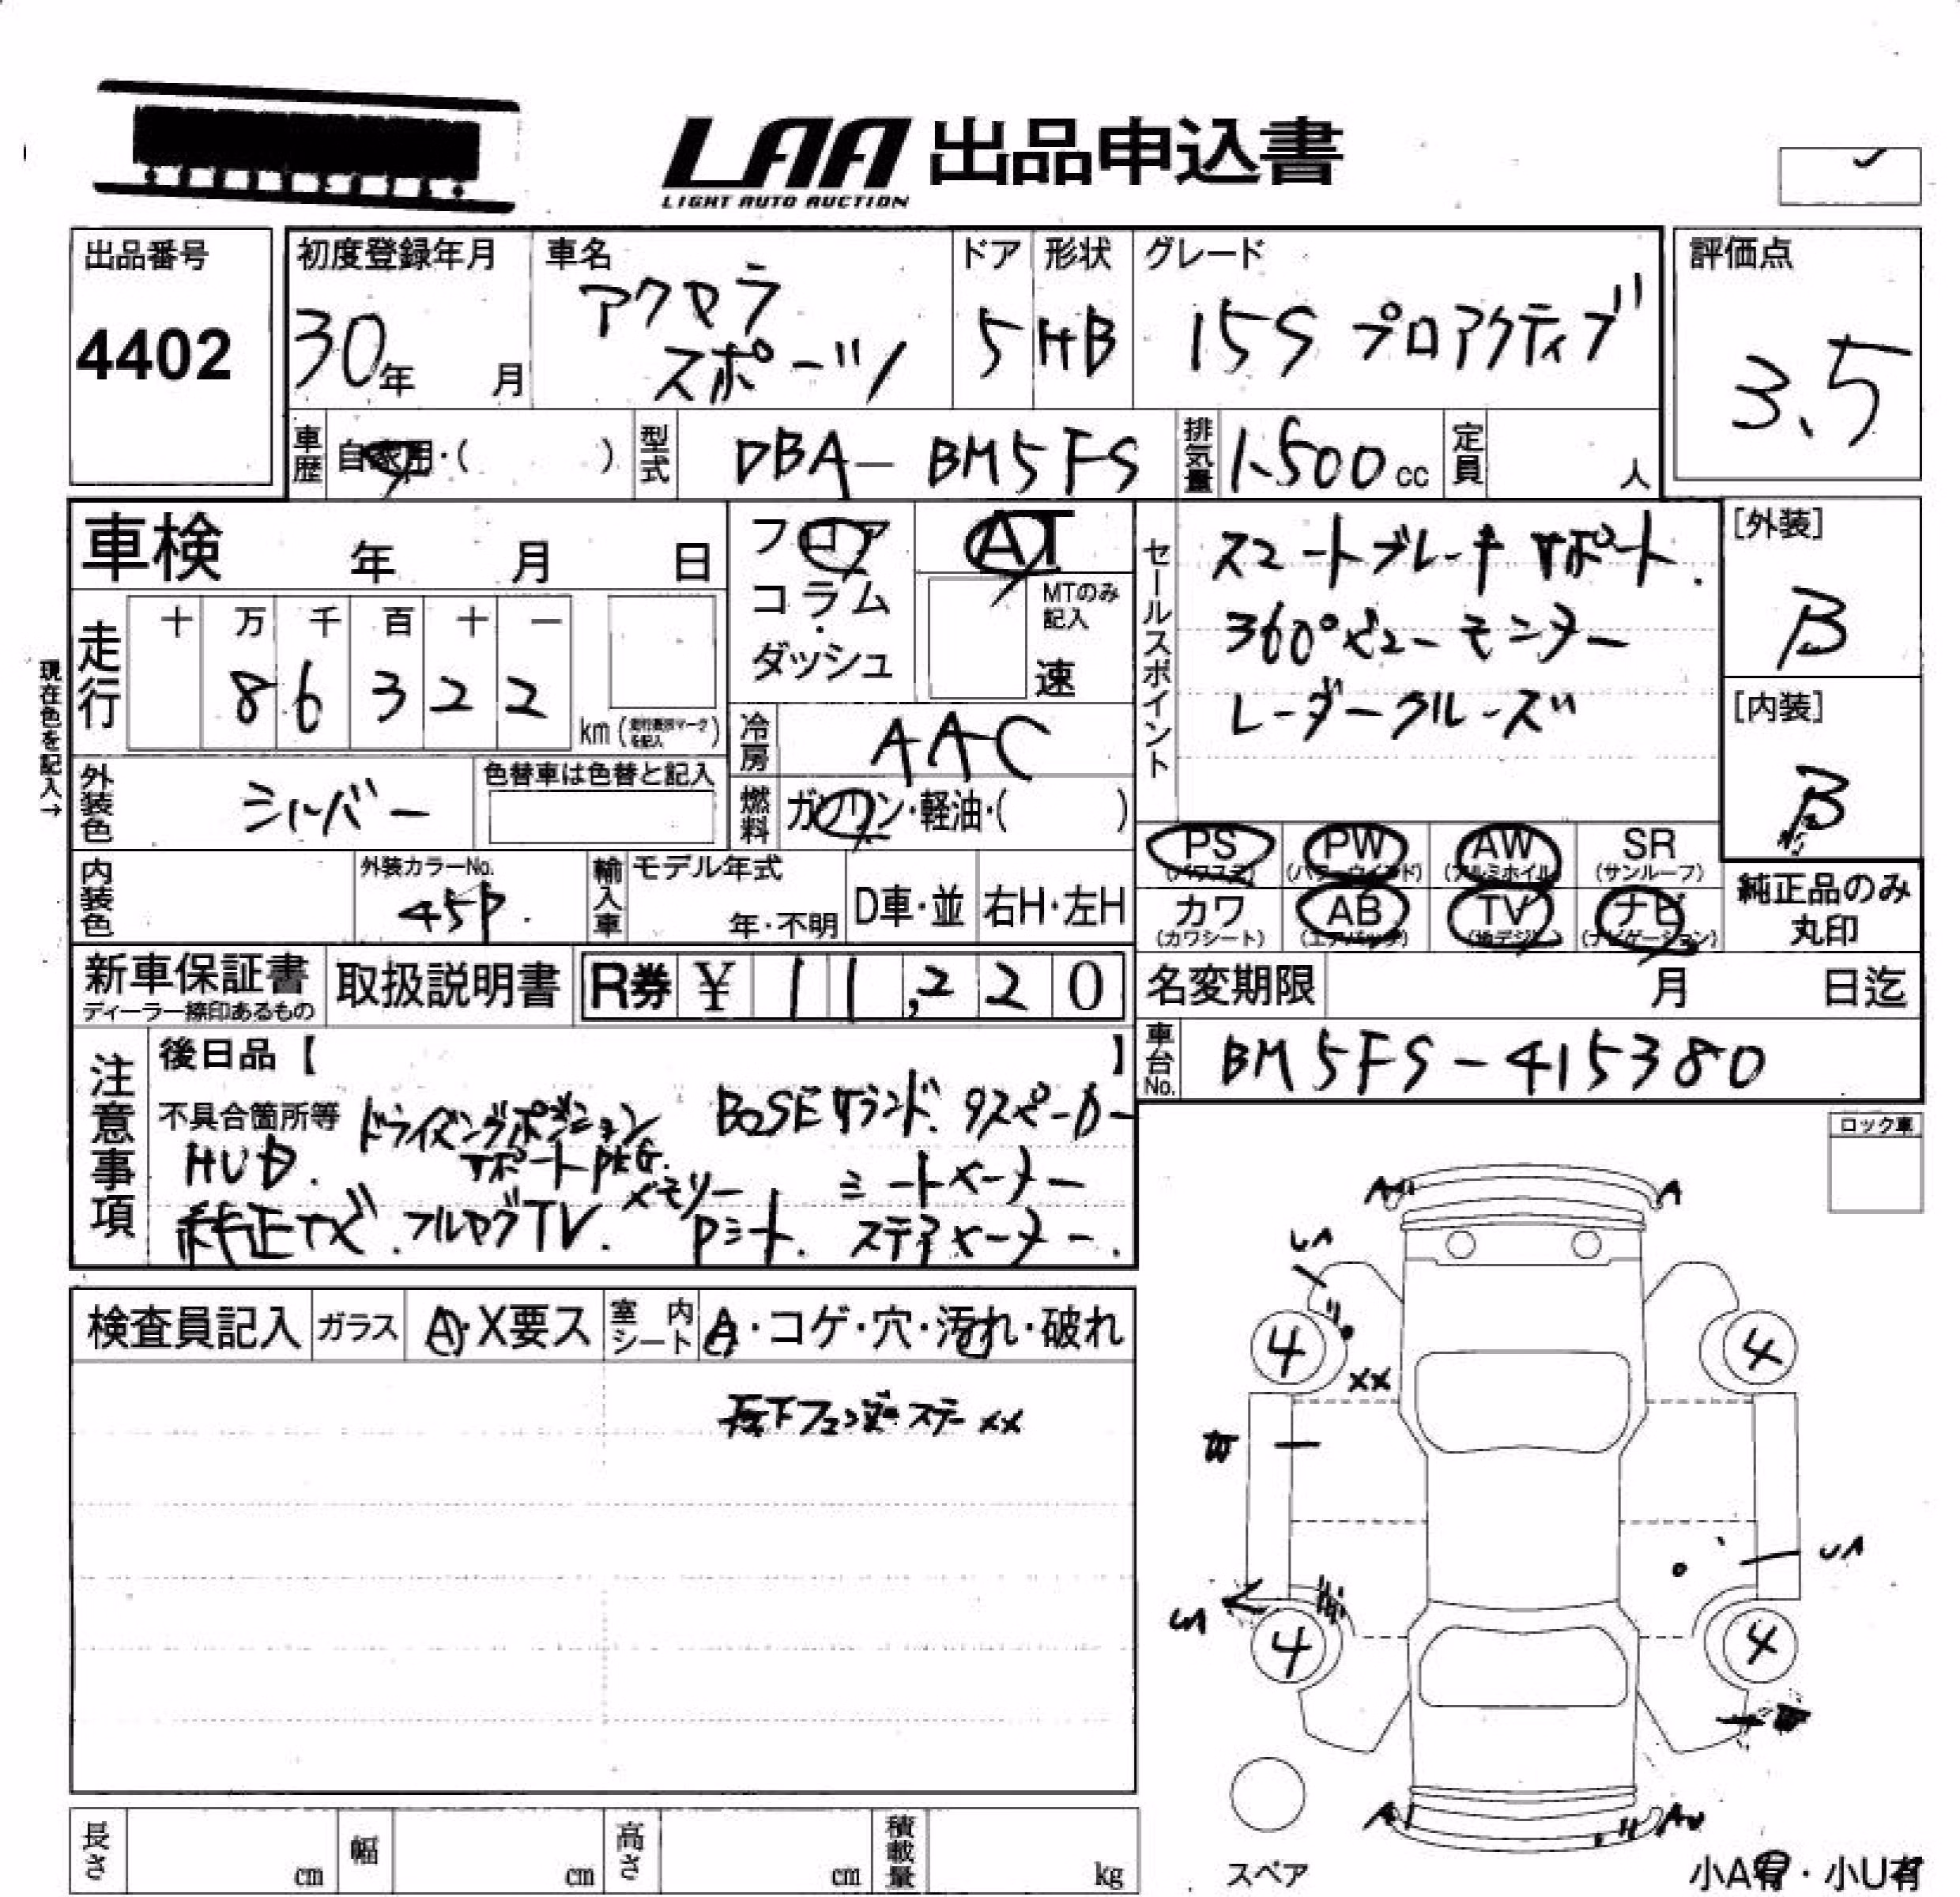 LAA 出品申込書
LIGHT AUTO AUCTION
出品番号
4402
初度登録年月
30年 月
車名
アクセラ
スポーツ
ドア
5
形状
HB
グレード
15S プロアクティブ
評価点
3.5
車歴 自家用・( )
型式 DBA-BM5FS
排気量 1.500cc
定員 人
車検 年 月 日
フロア
コラム
・
ダッシュ
AT
MTのみ
記入
速
現在色を記入→
走行
十 万 千 百 十 一
8 6 3 2 2
km
冷房 AAC
外装色 シルバー
色替車は色替と記入
燃料 ガソリン・軽油・( )
内装色
外装カラーNo.
45P.
輸入車
モデル年式
年・不明
D車・並
右H・左H
セールスポイント
スマートブレーキサポート.
360°ビューモニター
レーダークルーズ
[外装]
B
[内装]
B
PS
(パワステ)
PW
(パワーウインド)
AW
(アルミホイル)
SR
(サンルーフ)
カワ
(カワシート)
AB
(エアバック)
TV
(地デジ)
ナビ
(ナビゲーション)
純正品のみ
丸印
新車保証書
ディーラー捺印あるもの
取扱説明書
R券 ¥ 11,220
名変期限 月 日迄
車台No. BM5FS-415380
注意事項
後日品【 】
不具合箇所等 ドライビングポジション BOSEサウンド.9スピーカー
HUD. サポートPKG. シートヒーター
純正ナビ.フルセグTV. メモリーPシート. ステアヒーター.
ロック車
検査員記入
ガラス
A・X要ス
室内シート
A・コゲ・穴・汚れ・破れ
左下フェンダーステー XX
A
UA
4
4
XX
UA
4
4
スペア
長さ cm
幅 cm
高さ cm
積載量 kg
小A有・小U有